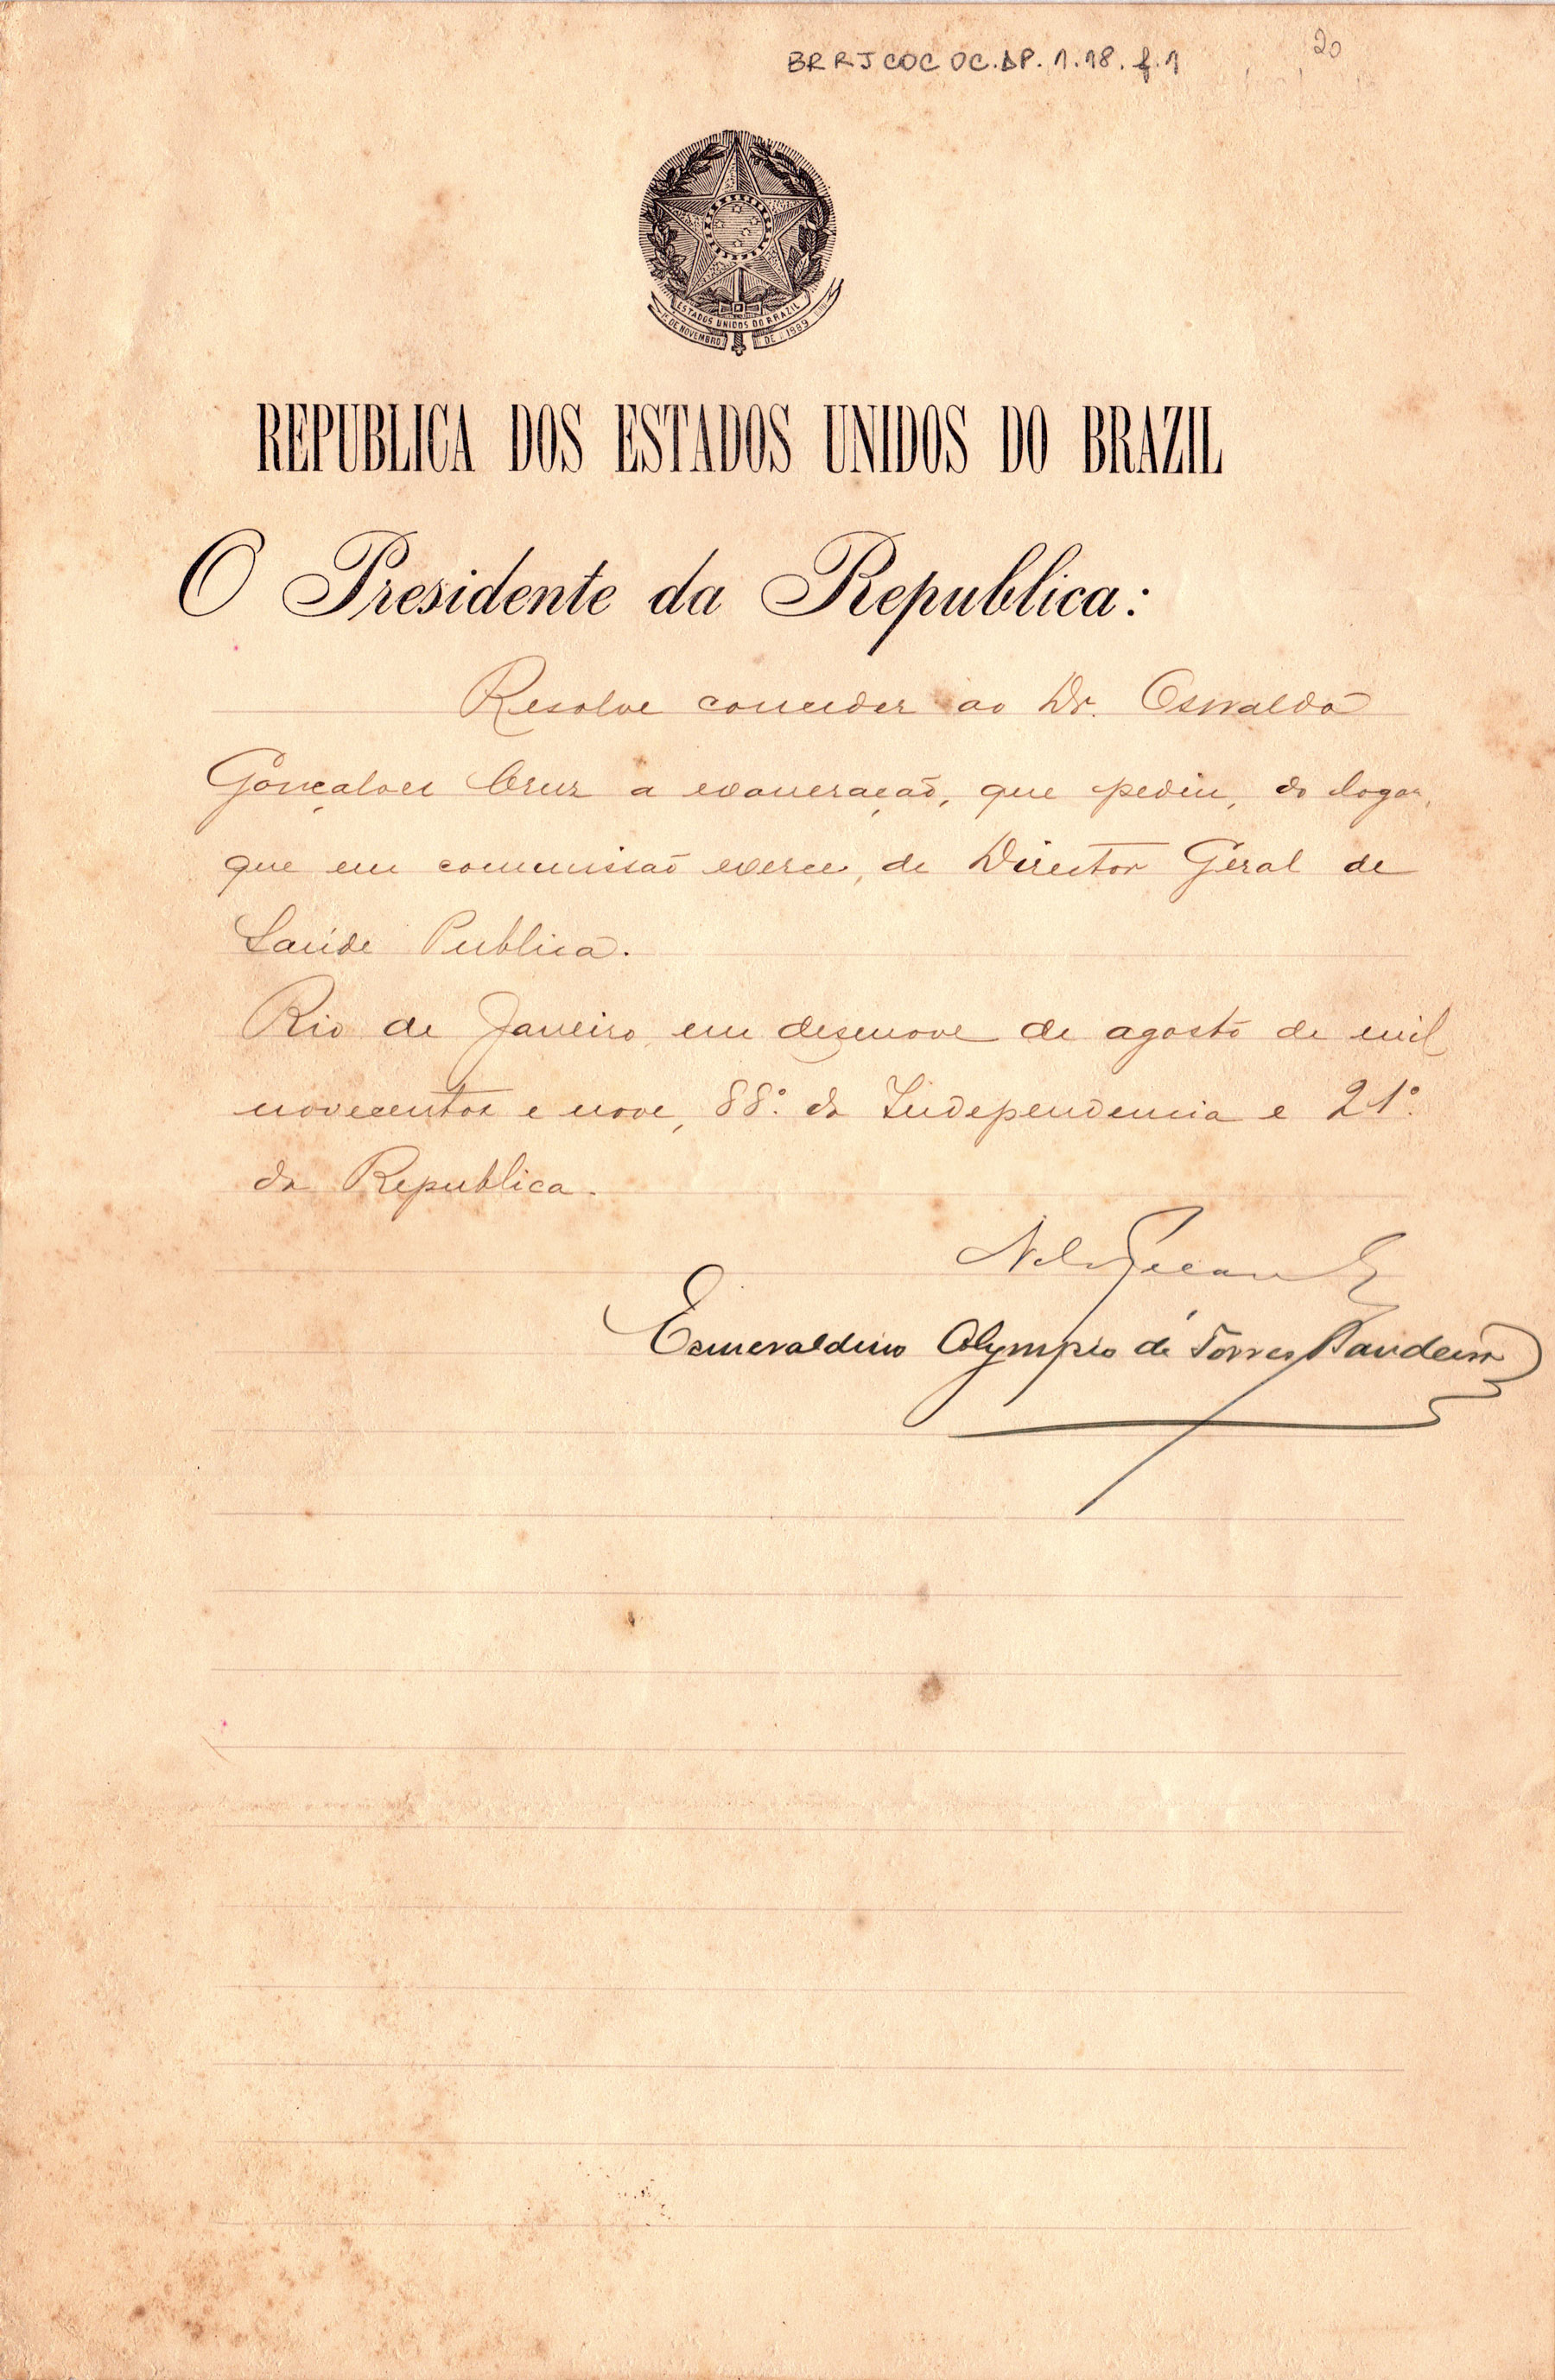 BR RJ COC OC.DP.1.18.f.1
20
ESTADOS UNIDOS DO BRAZIL
15 DE NOVEMBRO DE 1889
REPUBLICA DOS ESTADOS UNIDOS DO BRAZIL
O Presidente da Republica:
Resolve conceder ao Dr. Oswaldo
Gonçalves Cruz a exoneração, que pediu, do logar,
que em commissão exerce, de Director Geral de
Saúde Publica.
Rio de Janeiro, em desenove de agosto de mil
novecentos e nove, 88º. da Independencia e 21º.
da Republica.
Nilo Peçanha
Esmeraldino Olympio de Torres Bandeira